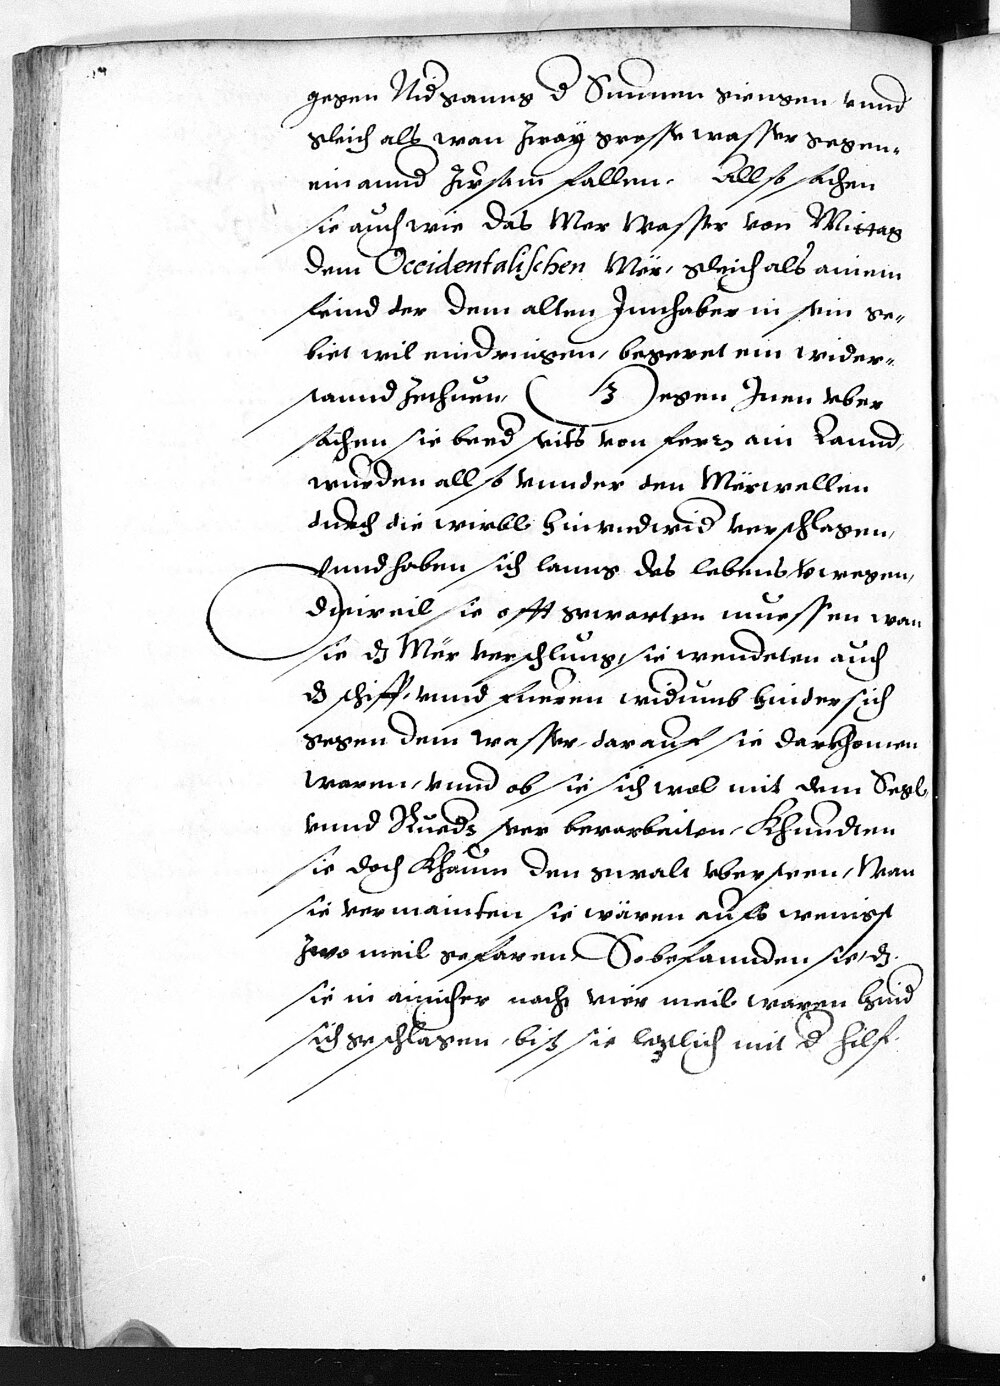 gegen Nidganng d Sunnen giengen vnnd
gleich als wan Zway grosse wasser gegen-
einannd Zusam fallen. Allso sachen
sie auch wie das Mer Wasser von Mittag
dem Occidentalischen Mër, gleich als ainem
feind der dem alten Innhaber in sein ge-
biet wil eindringen, begeret ein wider-
stannd Zethuen, Gegen Inen vber
sachen sie beed seits von ferr ain Lannd,
wurden allso vnnder den Mërwellen
durch die wirbl hinvndwid verschlagen,
vnnd haben sich lanng des lebens verwegen,
dieweil sie offt gewarten muessen wan
sie dz Mër verschlung, sie wendeten auch
dz schiff, vnnd fueren widumb hindersich
gegen dem wasser darauf sie darkhomen
waren, vnnd ob sie sich wol mit dem Segl
vnnd Rueds ser bearbeiten, Khundten
sie doch Khaum den gwalt vbersteen, Wan
sie vermainten sie wären aufs wenigst
Zwo meil gefaren, So befannden sie, dz
sie in ainicher nacht vier meil waren hind
sich geschlagen, biß sie letzlich mit d hilf